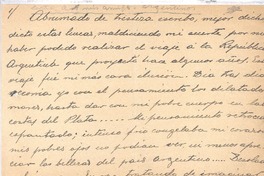 Abrumado de tristeza escribo, mejor dicho
dicto estas lineas, maldiciendo mi suerte, por no
haber podido realizar el viaje a la República
Argentina que proyecté hace algunos años. Ese
viaje fué mi más cara ilusión. Dia tras dia
yo con el pensamiento los dilatados
mares, hasta dar con mi pobre cuerpo en las
costas del Plata... Mi pensamiento retrocede
espantado; intenso frio congelaba mi corazón
mis pobres ojos no podian ver, ni menos apre-
ciar las bellezas del país Argentino....
tratando de imaginar